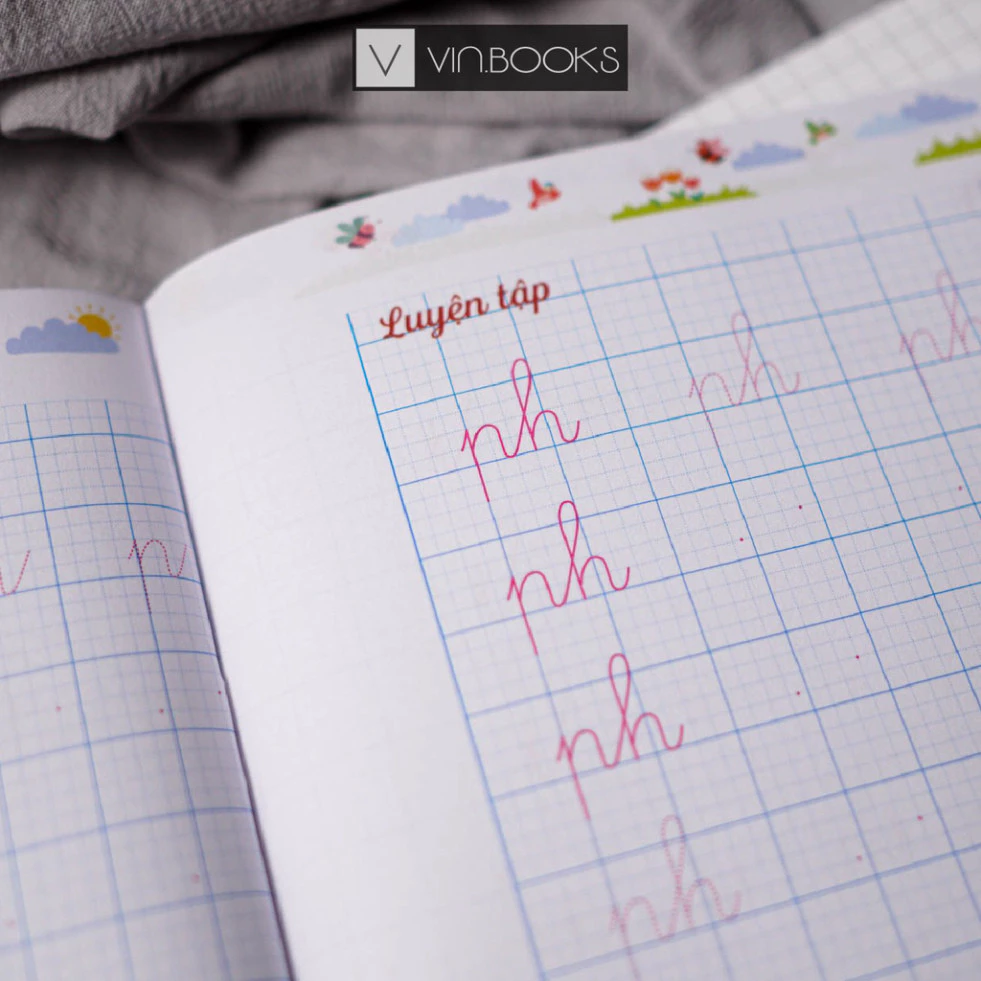 V VIN.BOOKS
Luyện tập
ph ph ph
ph
ph
ph
p